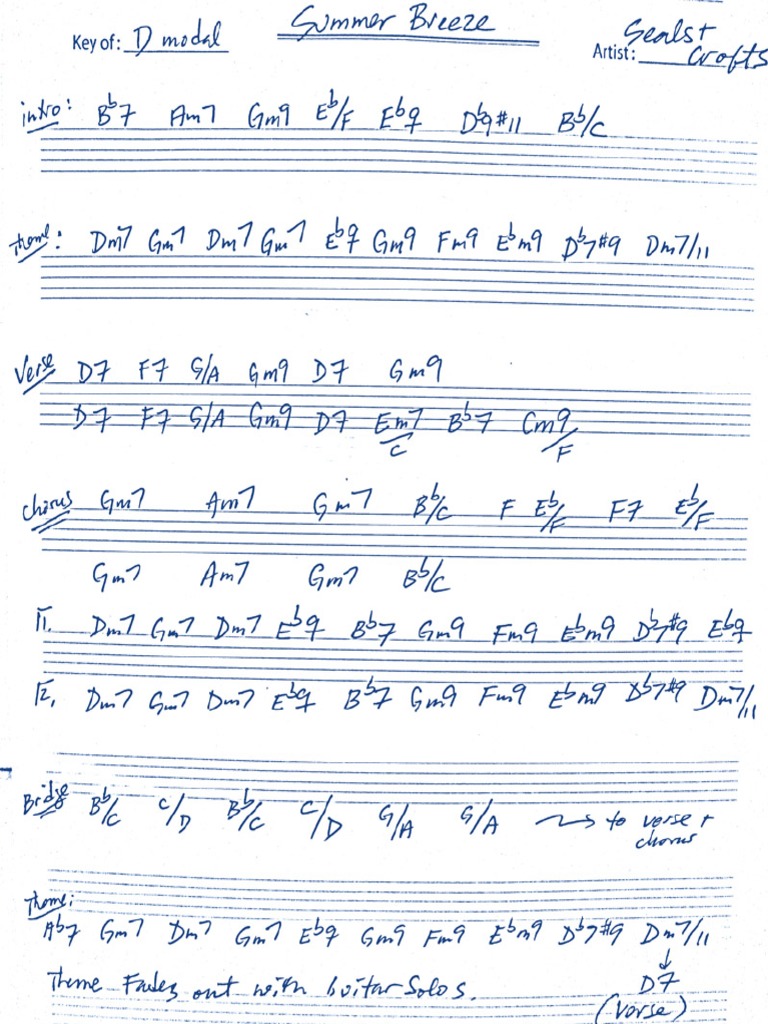 Summer Breeze
Key of: D modal
Seals +
Artist: Crofts
intro: B♭7 Am7 Gm9 E♭/F E♭9 D♭9#11 B♭/C
theme: Dm7 Gm7 Dm7 Gm7 E♭9 Gm9 Fm9 E♭m9 D♭7#9 Dm7/11
Verse D7 F7 G/A Gm9 D7 Gm9
D7 F7 G/A Gm9 D7 Em7/C B♭7 Cm9/F
chorus Gm7 Am7 Gm7 B♭/C F E♭/F F7 E♭/F
Gm7 Am7 Gm7 B♭/C
1. Dm7 Gm7 Dm7 E♭9 B♭7 Gm9 Fm9 E♭m9 D♭7#9 E♭9
2. Dm7 Gm7 Dm7 E♭9 B♭7 Gm9 Fm9 E♭m9 D♭7#9 Dm7/11
Bridge B♭/C C/D B♭/C C/D G/A G/A → to verse +
chorus
Theme:
A♭7 Gm7 Dm7 Gm7 E♭9 Gm9 Fm9 E♭m9 D♭7#9 Dm7/11
↓
Theme Fades out with Guitar Solos. D7
(Verse)